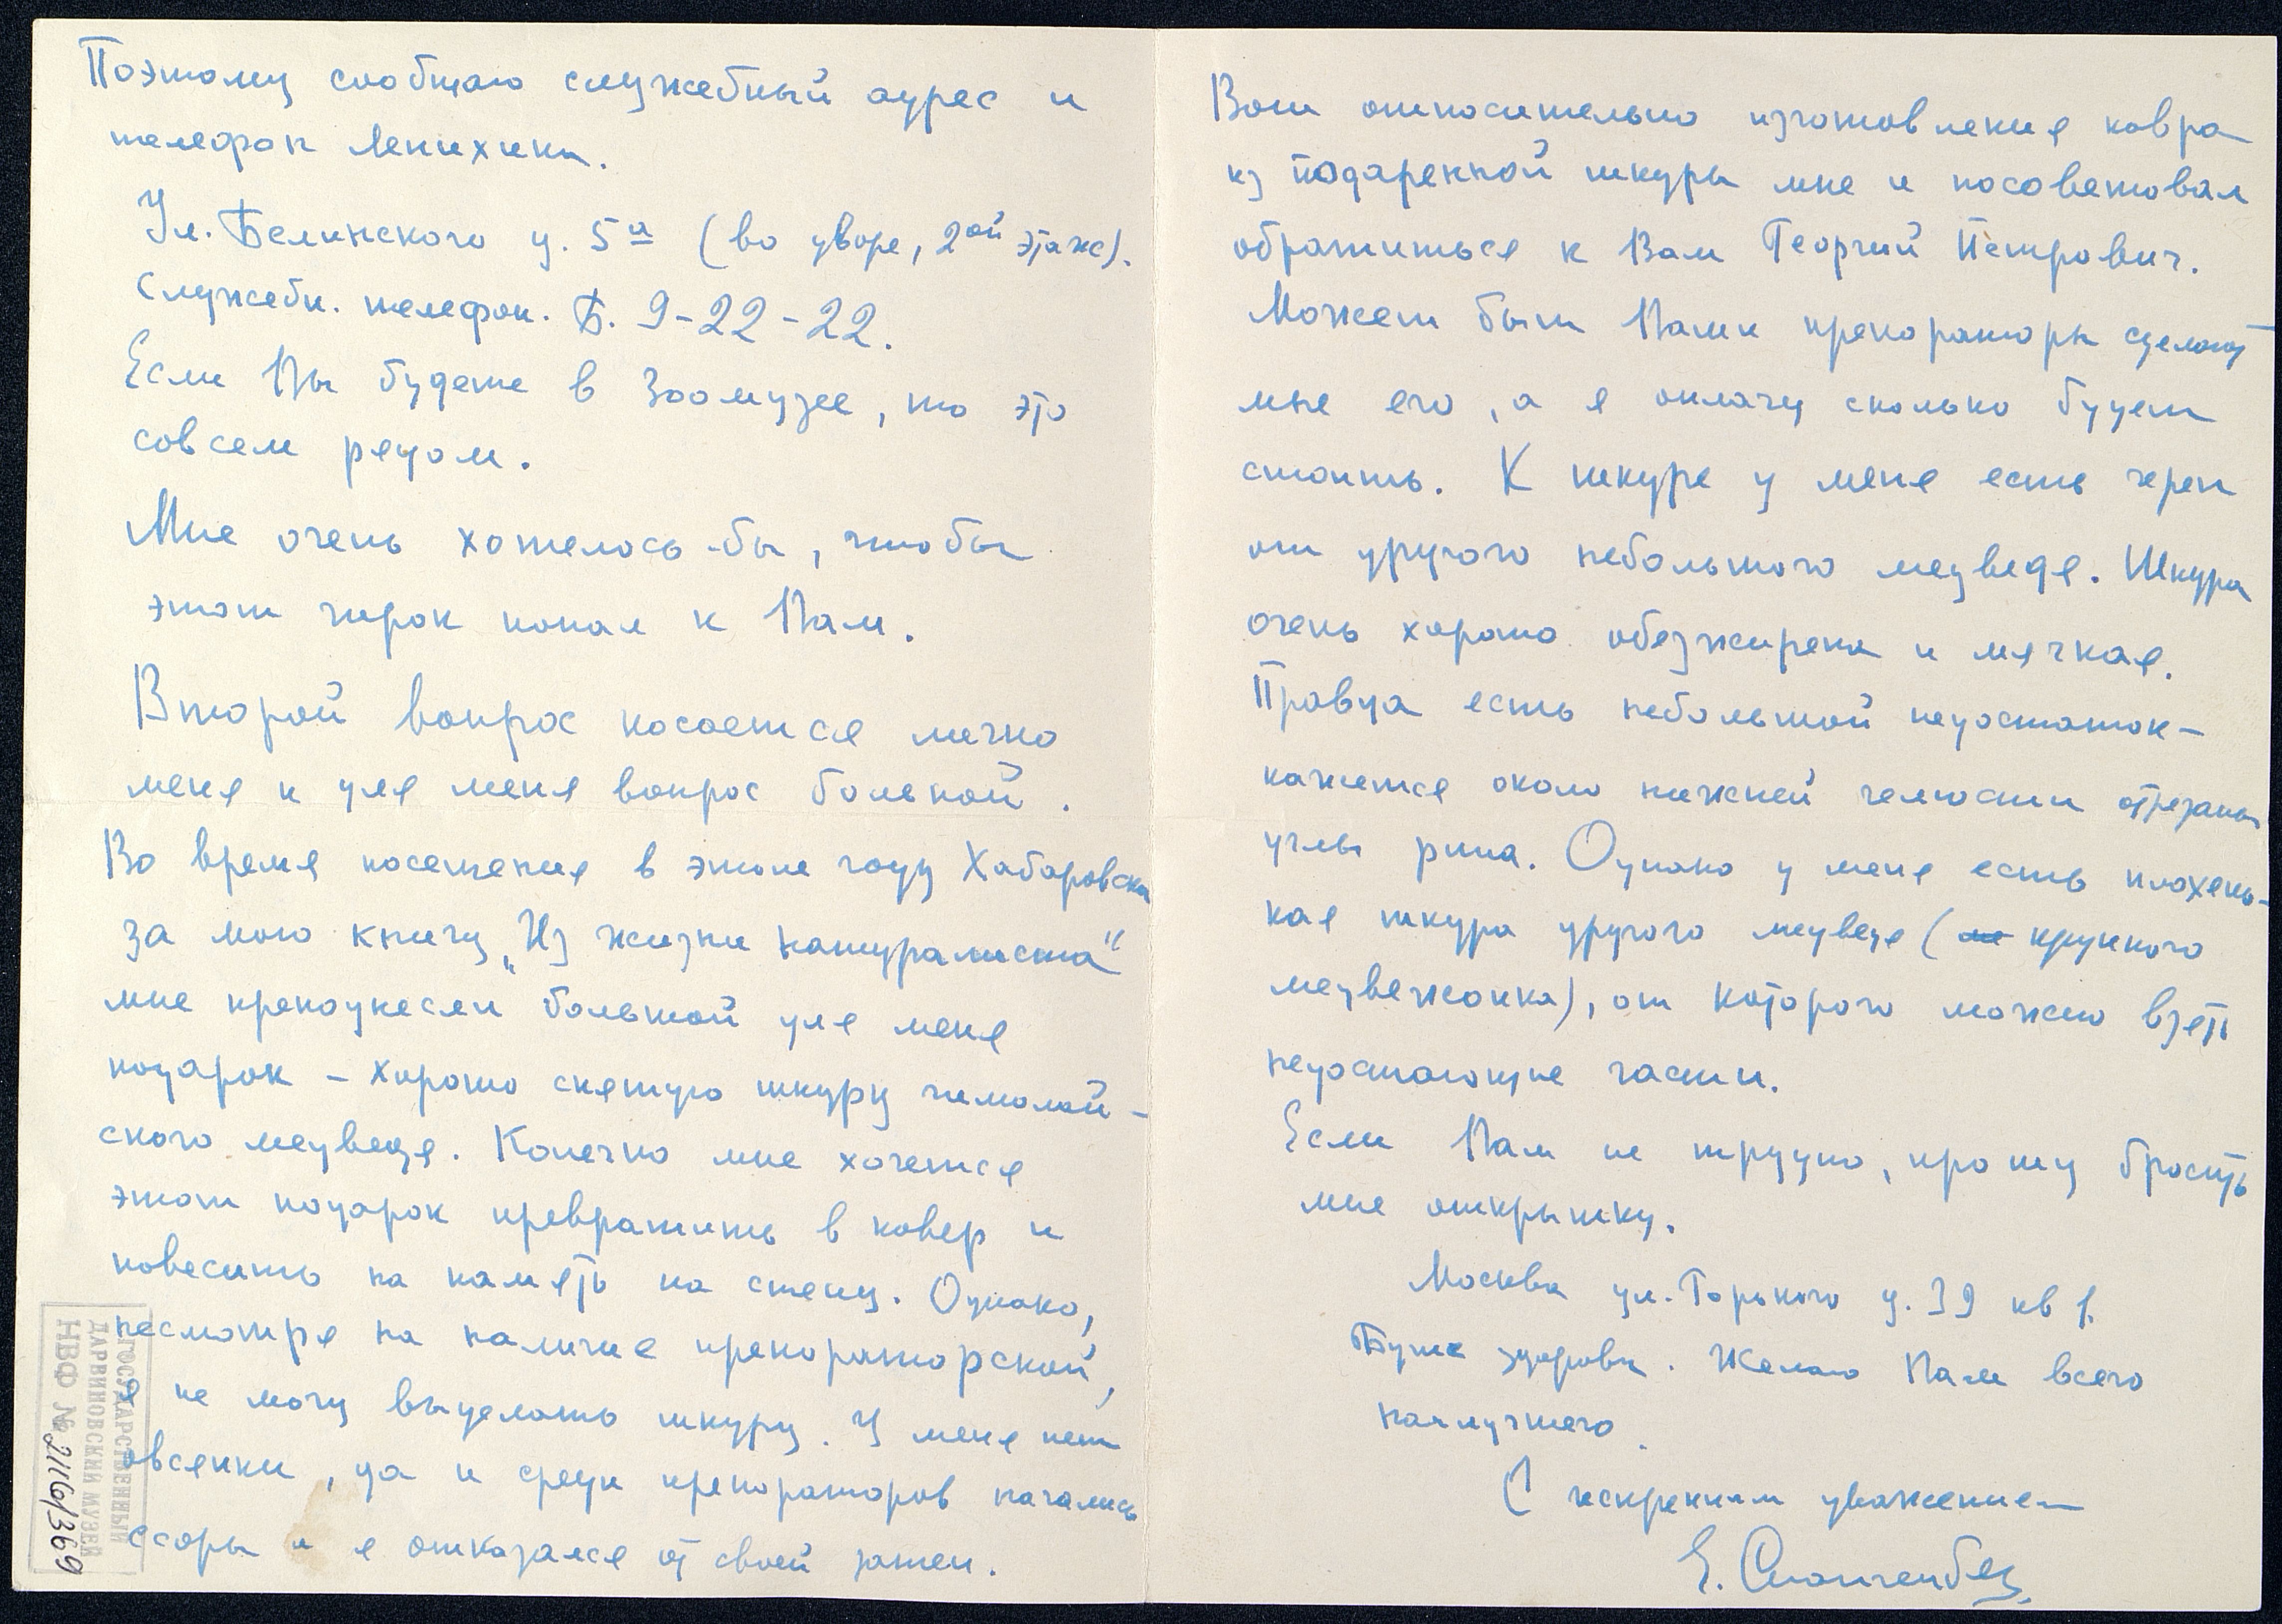 Поэтому сообщаю служебный адрес и
телефон Менихики.
Ул. Белинского д. 5а (во дворе, 2ой этаж).
Служебн. телефон. Б. 9-22-22.
Если Вы будете в Зоомузее, то это
совсем рядом.
Мне очень хотелось-бы, чтобы
этот чирок попал к Вам.
Второй вопрос касается лично
меня и для меня вопрос больной.
Во время посещения в этом году Хабаровска
за мою книгу „Из жизни натуралиста"
мне преподнесли большой для меня
подарок – хорошо снятую шкуру гималай-
ского медведя. Конечно мне хочется
этот подарок превратить в ковер и
повесить на память на стену. Однако,
несмотря на наличие препараторской,
я не могу выделать шкуру. У меня нет
овсянки, да и среди препараторов начались
ссоры и я отказался от своей затеи.
Вот относительно изготовления ковра
из подаренной шкуры мне и посоветовал
обратиться к Вам Георгий Петрович.
Может быть Ваши препараторы сделают
мне его, а я оплачу сколько будет
стоить. К шкуре у меня есть череп
от другого небольшого медведя. Шкура
очень хорошо обезжирена и мягкая.
Правда есть небольшой недостаток –
кажется около нижней челюсти отрезаны
углы рта. Однако у меня есть плохень-
кая шкура другого медведя (крупного
медвежонка), от которого можно взять
недостающие части.
Если Вам не трудно, прошу бросить
мне открытку.
Москва ул. Горького д. 39 кв 1.
Будьте здоровы. Желаю Вам всего
наилучшего.
С искренним уважением
Е. Спангенберг
ГОСУДАРСТВЕННЫЙ
ДАРВИНОВСКИЙ МУЗЕЙ
НВФ № 2116/3669